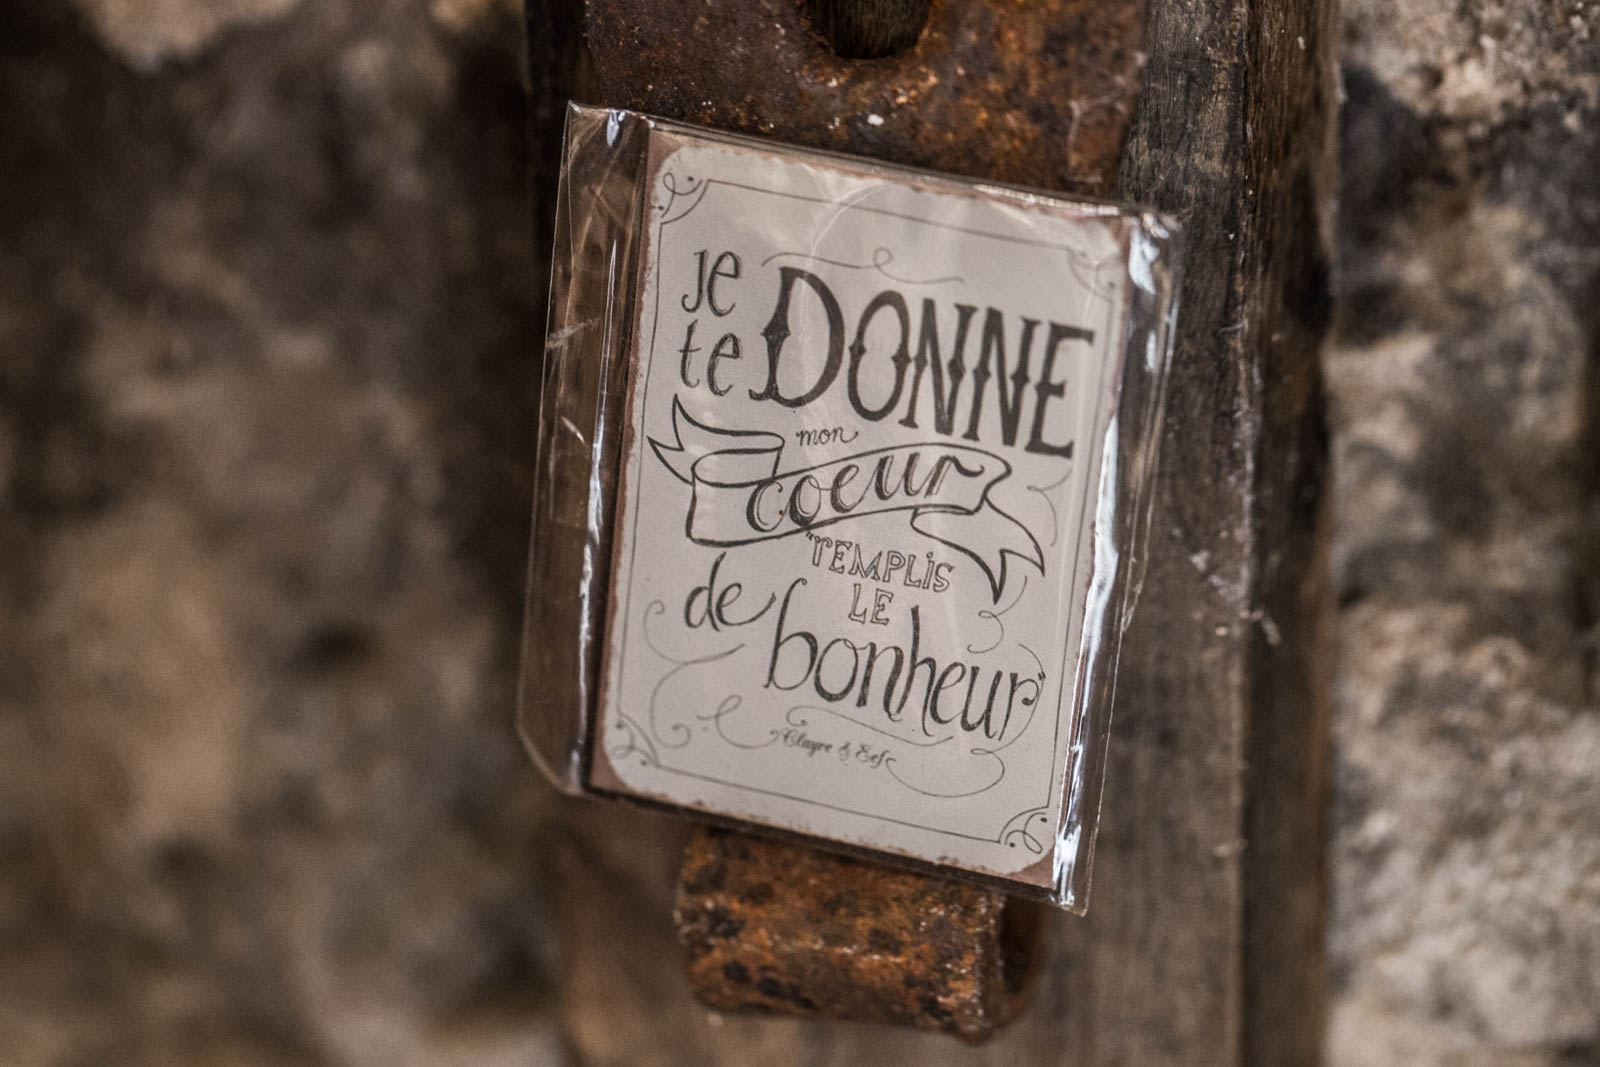 Je
te DONNE
mon
coeur
"remplis
LE
de bonheur"
Clayre & Eef